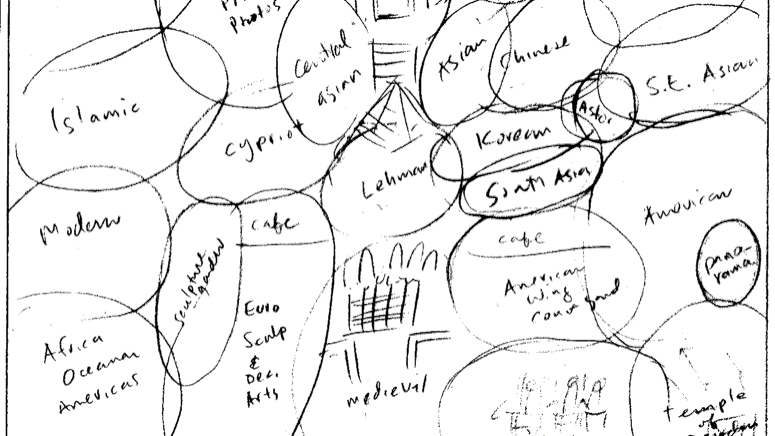 Photos
Central
asian
Asian
Chinese
S.E. Asian
Islamic
Astor
Cypriot
Korean
Lehman
South Asian
American
Modern
cafe
cafe
sculpture
garden
pano-
rama
American
Wing
courtyard
Euro
Sculp
&
Dec.
Arts
Africa
Oceania
Americas
medieval
temple
of